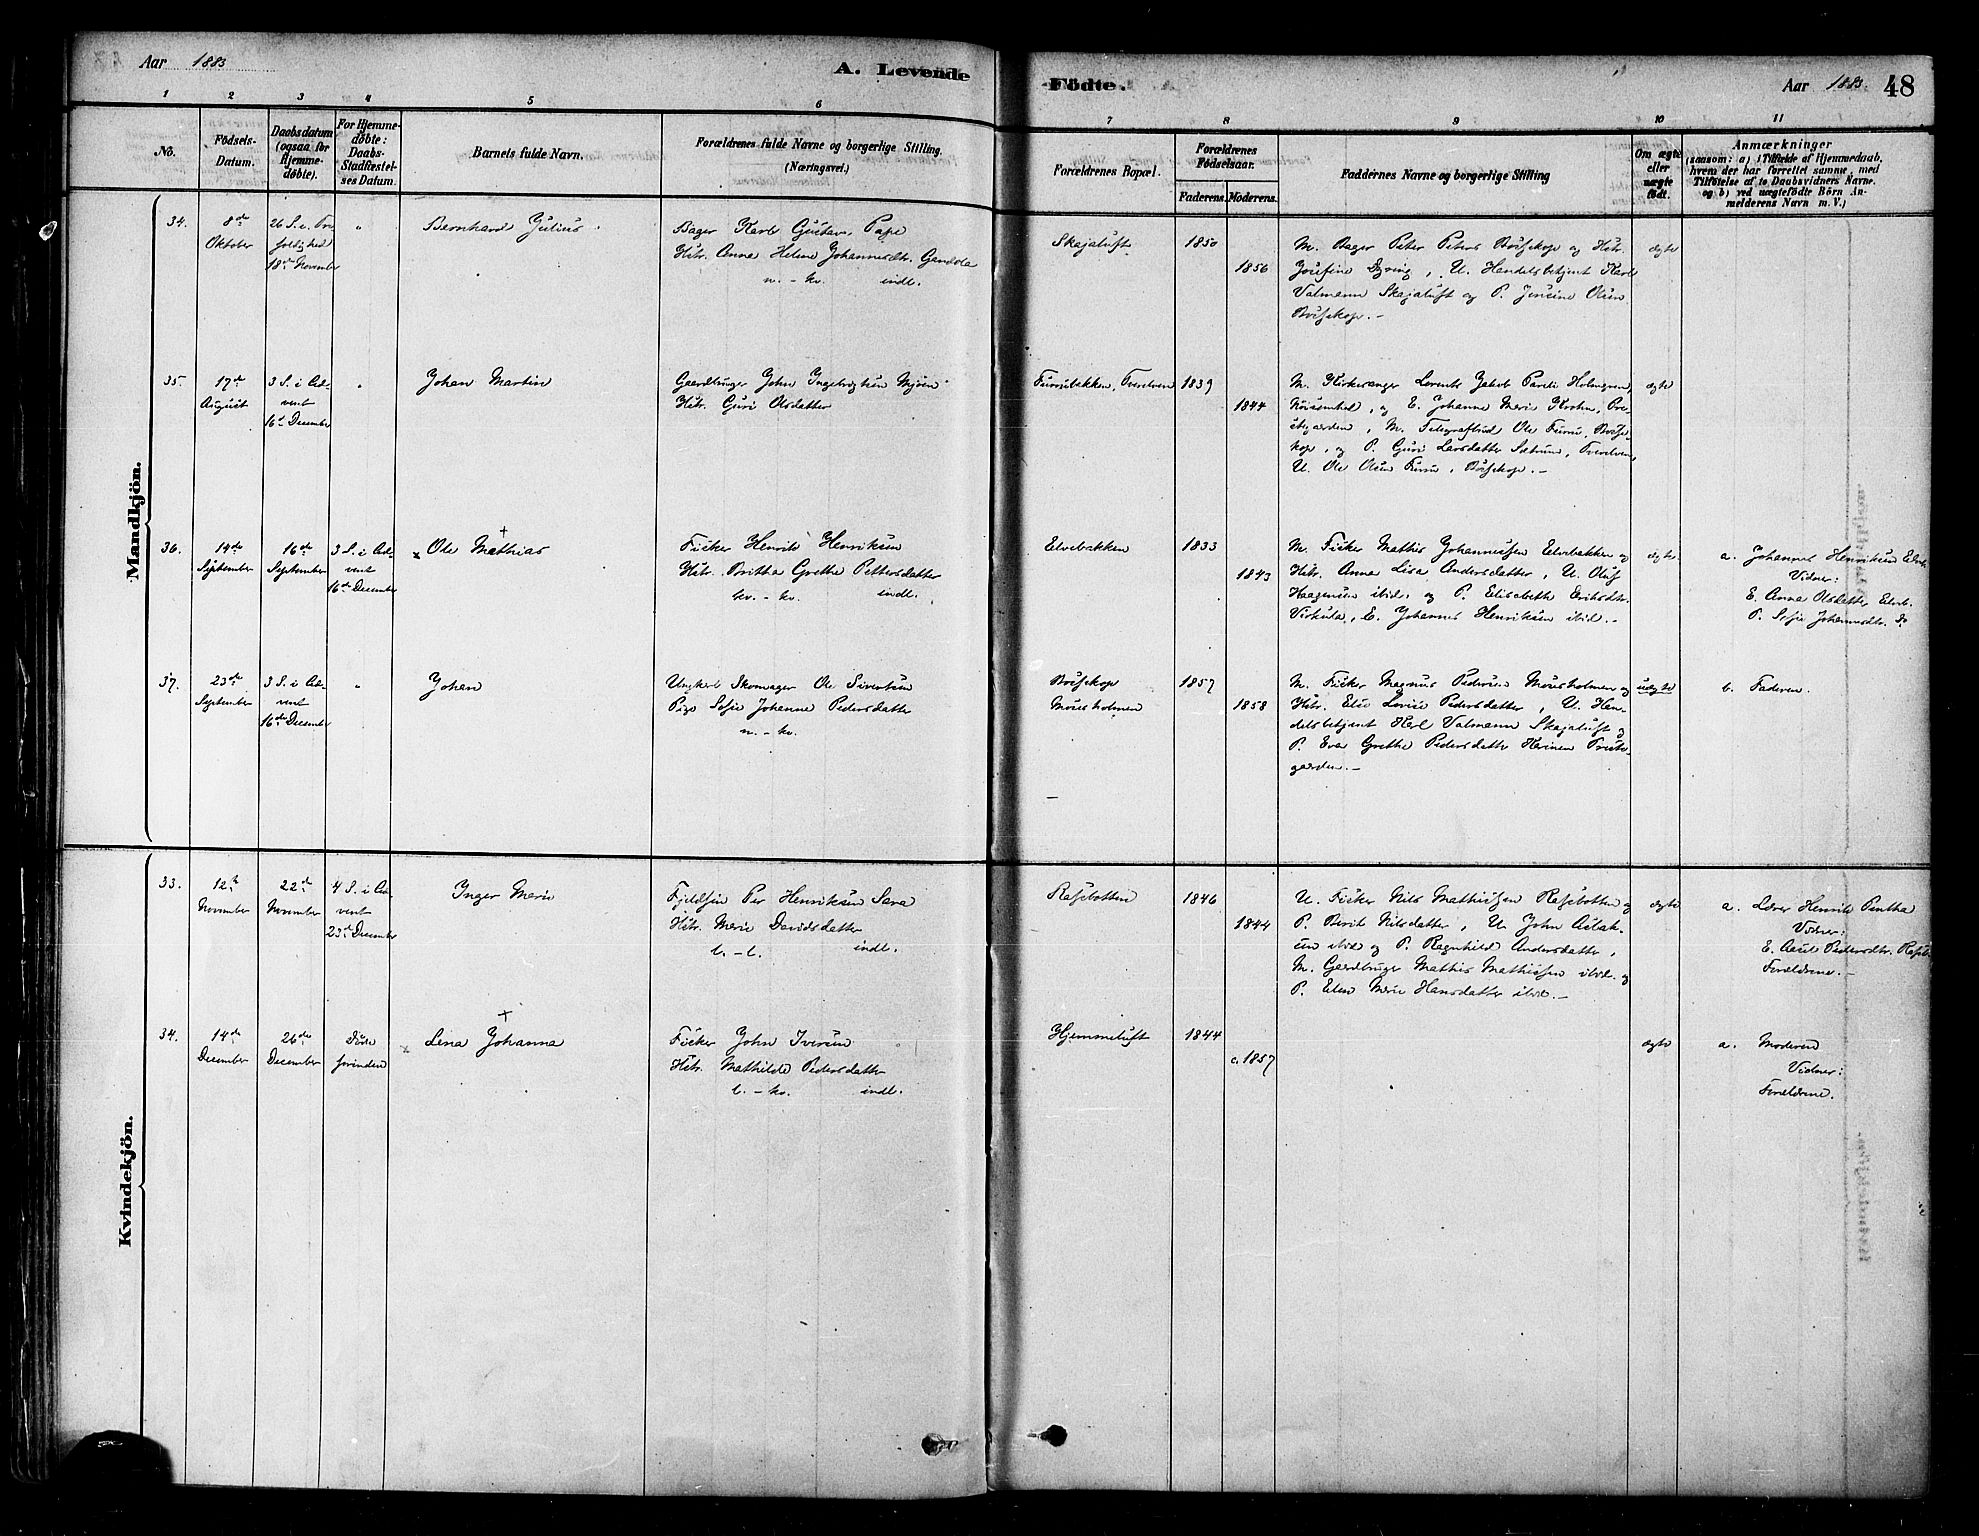 Aar 1883
A. Levende
Födte.
Aar 1883.
48
1 2 3 4 5 6 7 8 9 10 11
No.
Födsels-
Datum.
Daabsdatum
(ogsaa for
Hjemme-
døbte).
For Hjemme-
døbte:
Daabs-
Stadfæstel-
ses Datum.
Barnets fulde Navn.
Forældrenes fulde Navne og borgerlige Stilling.
(Næringsvei.)
Forældrenes Bopæl.
Forældrenes
Födselsaar.
Faderens. Moderens.
Faddernes Navne og borgerlige Stilling
Om ægte
eller
uægte
födt.
Anmærkninger
(saasom: a) i Tilfælde af Hjemmedaab,
hvem der har forrettet samme, med
Tilföielse af to Daabsvidners Navne.
og b) ved uægtefödte Börn An-
melderens Navn m. V.)
Mandkjön.
34.
8de
Oktober
26 S. e. Tre
foldighed
18de November
"
Bernhard Julius
Bager Karl Gustav Pape
Hstr. Anna Helene Johannesdtr. Gandola
n. - kv. indl.
Skajaluft
1850
1856
M. Bager Peter Peters Bossekop og Hstr.
Josefine Dyring, U. Handelsbetjent Karl
Valmann Skajaluft og P. Jensine Olsen
Bossekop. -
ægte
35.
17de
August
3 S. i Ad-
vent
16de December
"
Johan Martin
Gaardbruger John Ingebrigtsen Mjøen
Hstr. Guri Olsdatter
Furubakken, Tverelven
1839
1844
M. Kirkesanger Lorents Jakob Pareli Holmgren,
og E. Johanne Marie Krohn, Pre-
stegaarden, M. Telegrafbud Ole Furu, Bosse-
kop, og P. Guri Larsdatter Sætrum, Tverelven,
U. Ole Olsen Furu, Bossekop. -
ægte
36.
14de
September
16de
September
3 S. i Ad-
vent
16de December
x Ole Mathias +
Fisker Henrik Henriksen
Hstr. Britha Grethe Pettersdatter
kv. - kv. indl.
Elvebakken
1833
1843
M. Fisker Mathis Johannessen Elvebakken og
Hstr. Anna Lisa Andersdatter, U. Oluf
Haagensen ibid. og P. Elisabeth Eriksdtr.
Virkula, E. Johannes Henriksen ibid. -
ægte
a. Johannes Henriksen Elveb.
Vidner:
E. Anna Olsdatter, Elveb.
P. Sofie Johannesdtr. do
37.
23de
September
3 S. i Ad-
vent
16de December
"
Johan
Ungkarl Skomager Ole Sivertsen
Pige Sofie Johanne Pedersdatter
n. - kv.
Bossekop
Mousholmen
1857
1858
M. Fisker Magnus Pedersen Mousholmen og
Hstr. Else Lovise Pedersdatter, U. Han-
delsbetjent Karl Valmann Skajaluft og
P. Eva Grethe Pedersdatter Heinen Preste-
gaarden. -
uægte
b. Faderen.
Kvindekjön.
33.
12te
November
22de
November
4 S. i Ad-
vent
23de December
Inger Marie
Fjeldfin Per Henriksen Sara
Hstr. Marie Davidsdatter
l. - l. indl.
Rafsbotten
1846
1844
U. Fisker Nils Mathissen Rafsbotten og
P. Berit Nilsdatter, U. John Aslak-
sen ibid og P. Ragnhild Andersdatter,
M. Gaardbruger Mathis Mathissen ibid. og
P. Elen Marie Hansdatter ibid. -
ægte
a. Lærer Henrik Pentha
Vidner:
E. Pedersdtr. Rafsb.
Forældrene. -
34.
14de
December
26de
December
Døde
forinden
x Lena Johanna +
Fisker John Iversen
Hstr. Mathilde Pedersdatter
l. - kv. indl.
Hjemmeluft
1844
c. 1857
ægte
a. Moderen
Vidner:
Forældrene.